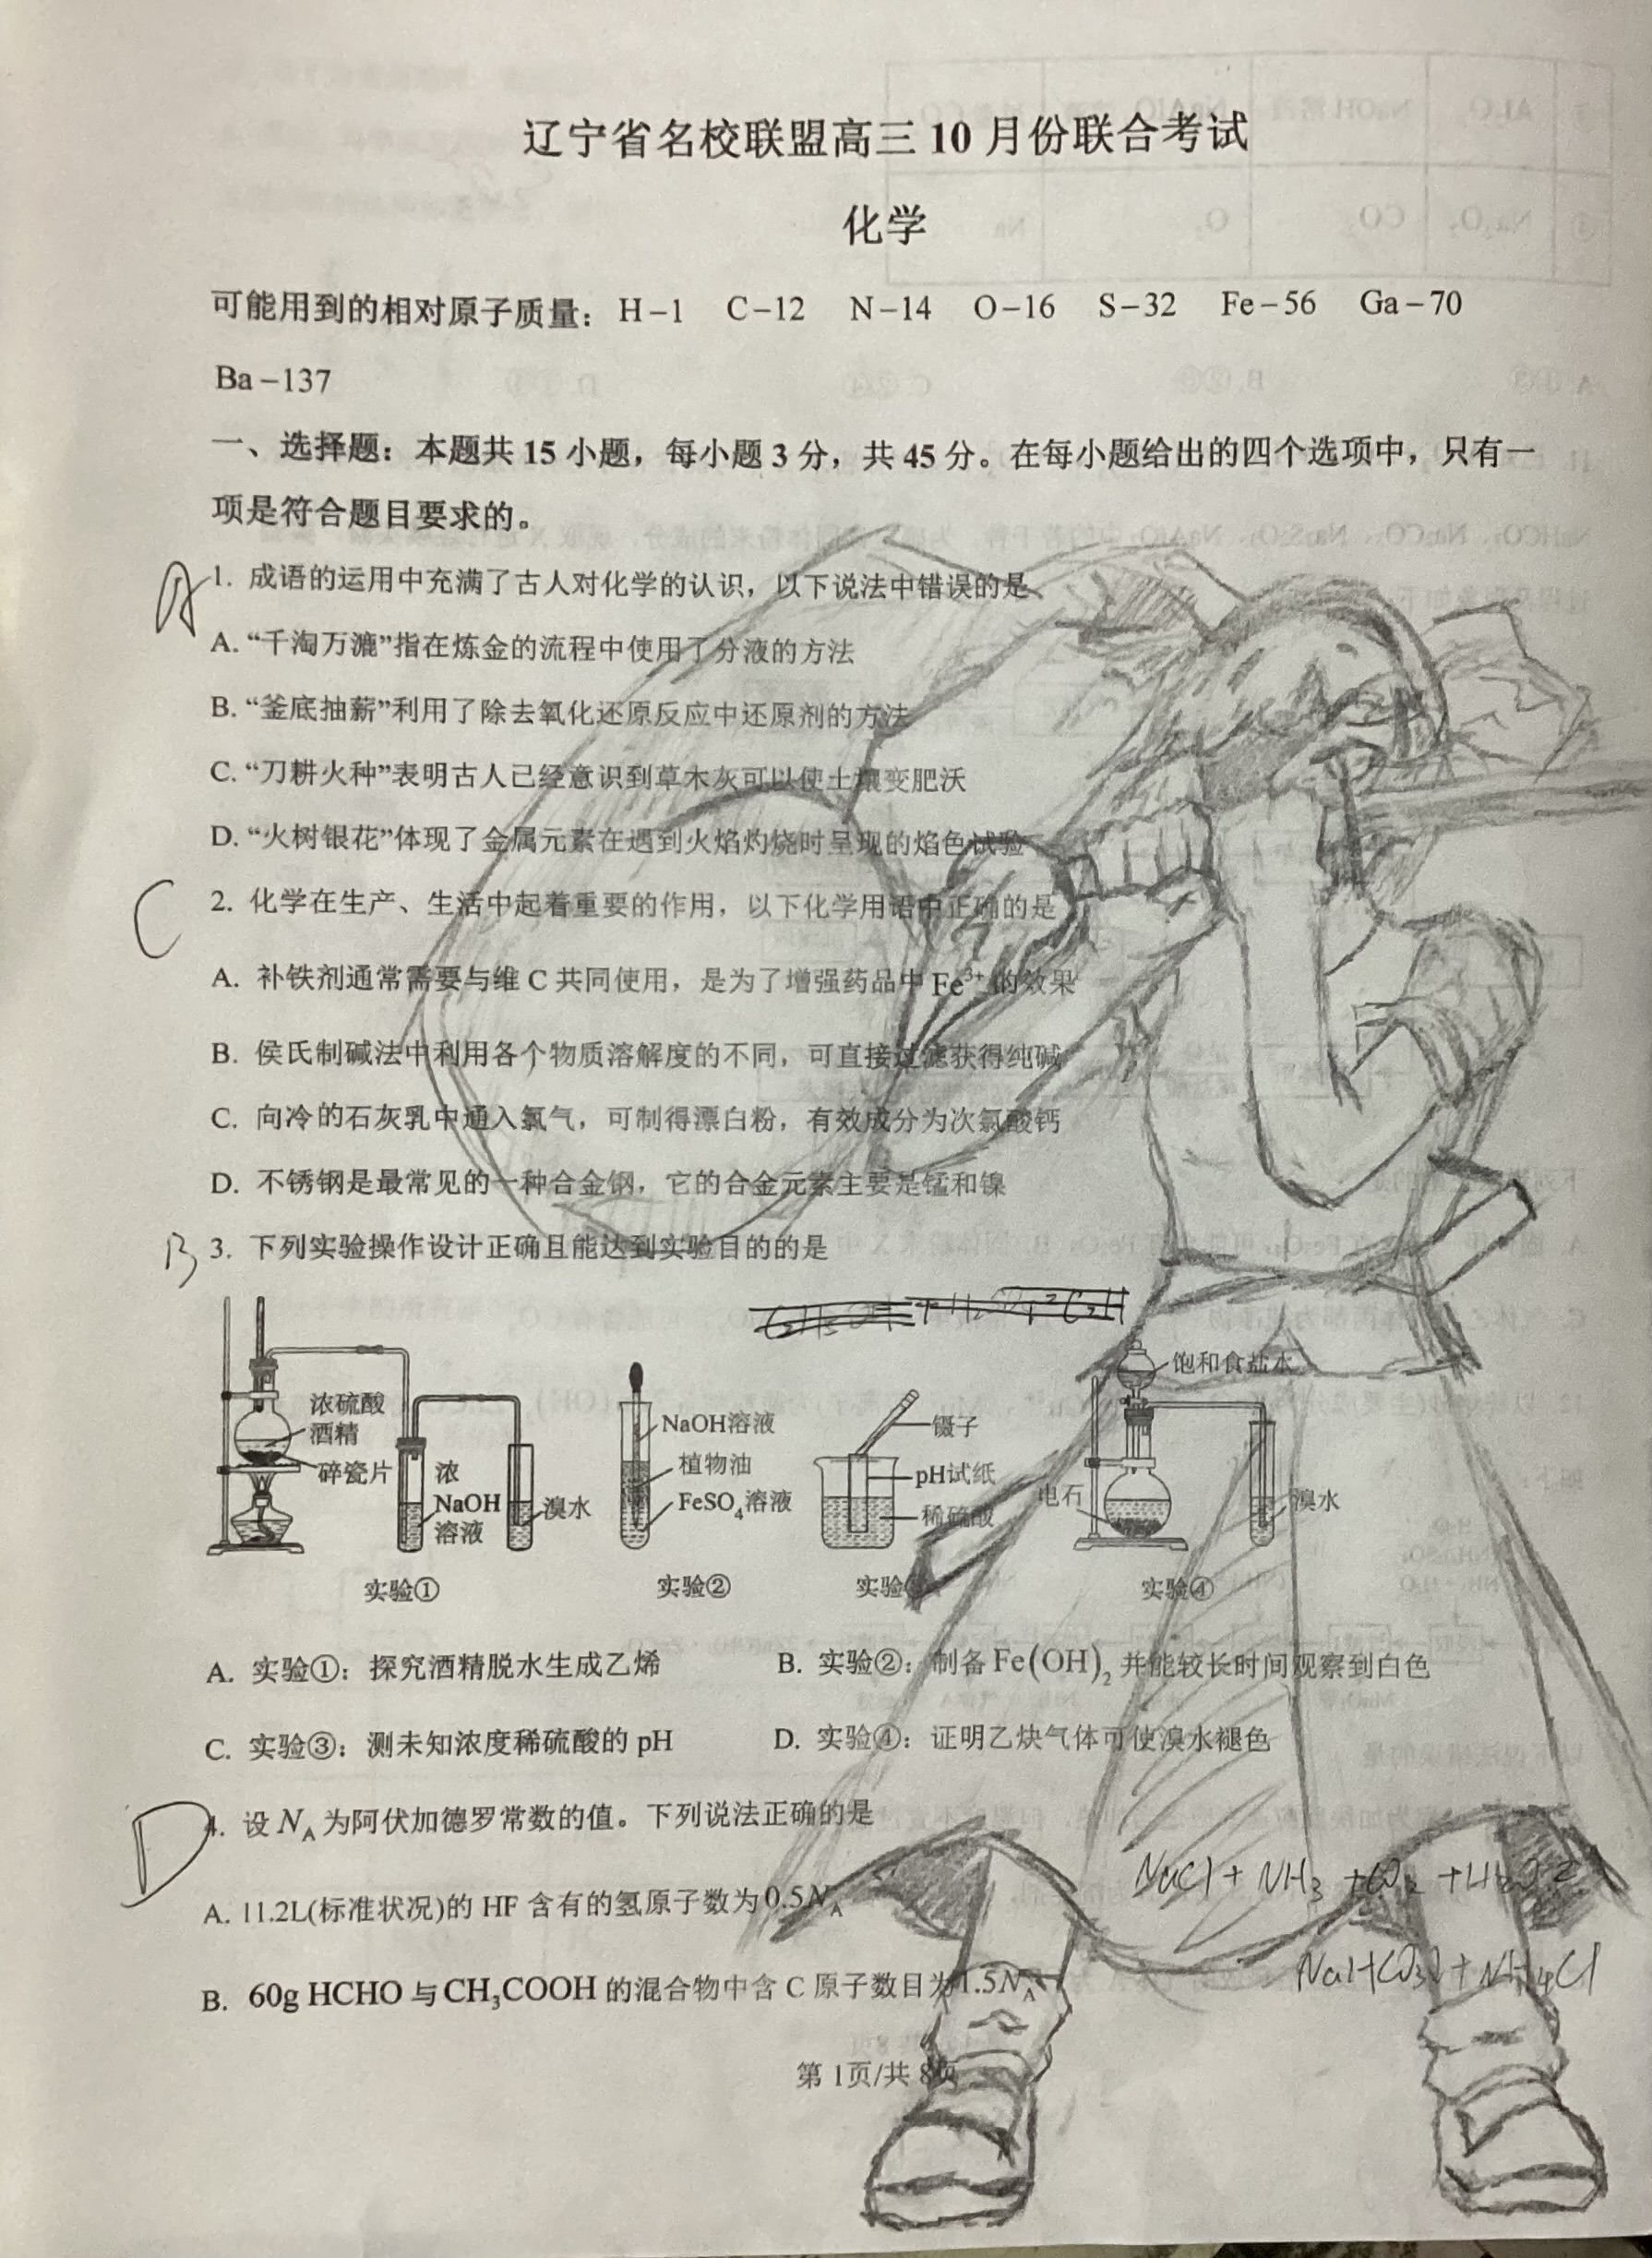 辽宁省名校联盟高三 10 月份联合考试
化学
可能用到的相对原子质量：H－1 C－12 N－14 O－16 S－32 Fe－56 Ga－70
Ba－137
一、选择题：本题共 15 小题，每小题 3 分，共 45 分。在每小题给出的四个选项中，只有一
项是符合题目要求的。
A 1. 成语的运用中充满了古人对化学的认识，以下说法中错误的是
A. “千淘万漉”指在炼金的流程中使用了分液的方法
B. “釜底抽薪”利用了除去氧化还原反应中还原剂的方法
C. “刀耕火种”表明古人已经意识到草木灰可以使土壤变肥沃
D. “火树银花”体现了金属元素在遇到火焰灼烧时呈现的焰色试验
C 2. 化学在生产、生活中起着重要的作用，以下化学用语中正确的是
A. 补铁剂通常需要与维 C 共同使用，是为了增强药品中 Fe³⁺ 的效果
B. 侯氏制碱法中利用各个物质溶解度的不同，可直接过滤获得纯碱
C. 向冷的石灰乳中通入氯气，可制得漂白粉，有效成分为次氯酸钙
D. 不锈钢是最常见的一种合金钢，它的合金元素主要是锰和镍
B 3. 下列实验操作设计正确且能达到实验目的的是
浓硫酸
酒精
碎瓷片
浓
NaOH
溶液
溴水
NaOH溶液
植物油
FeSO₄溶液
镊子
pH试纸
稀硫酸
饱和食盐水
电石
溴水
实验① 实验② 实验 实验④
A. 实验①：探究酒精脱水生成乙烯 B. 实验②：制备 Fe(OH)₂ 并能较长时间观察到白色
C. 实验③：测未知浓度稀硫酸的 pH D. 实验④：证明乙炔气体可使溴水褪色
D 4. 设 N_A 为阿伏加德罗常数的值。下列说法正确的是
NaCl + NH₃ + CO₂ + H₂O =
A. 11.2L(标准状况)的 HF 含有的氢原子数为 0.5N_A
B. 60g HCHO 与 CH₃COOH 的混合物中含 C 原子数目为 1.5N_A
第 1页/共 8页